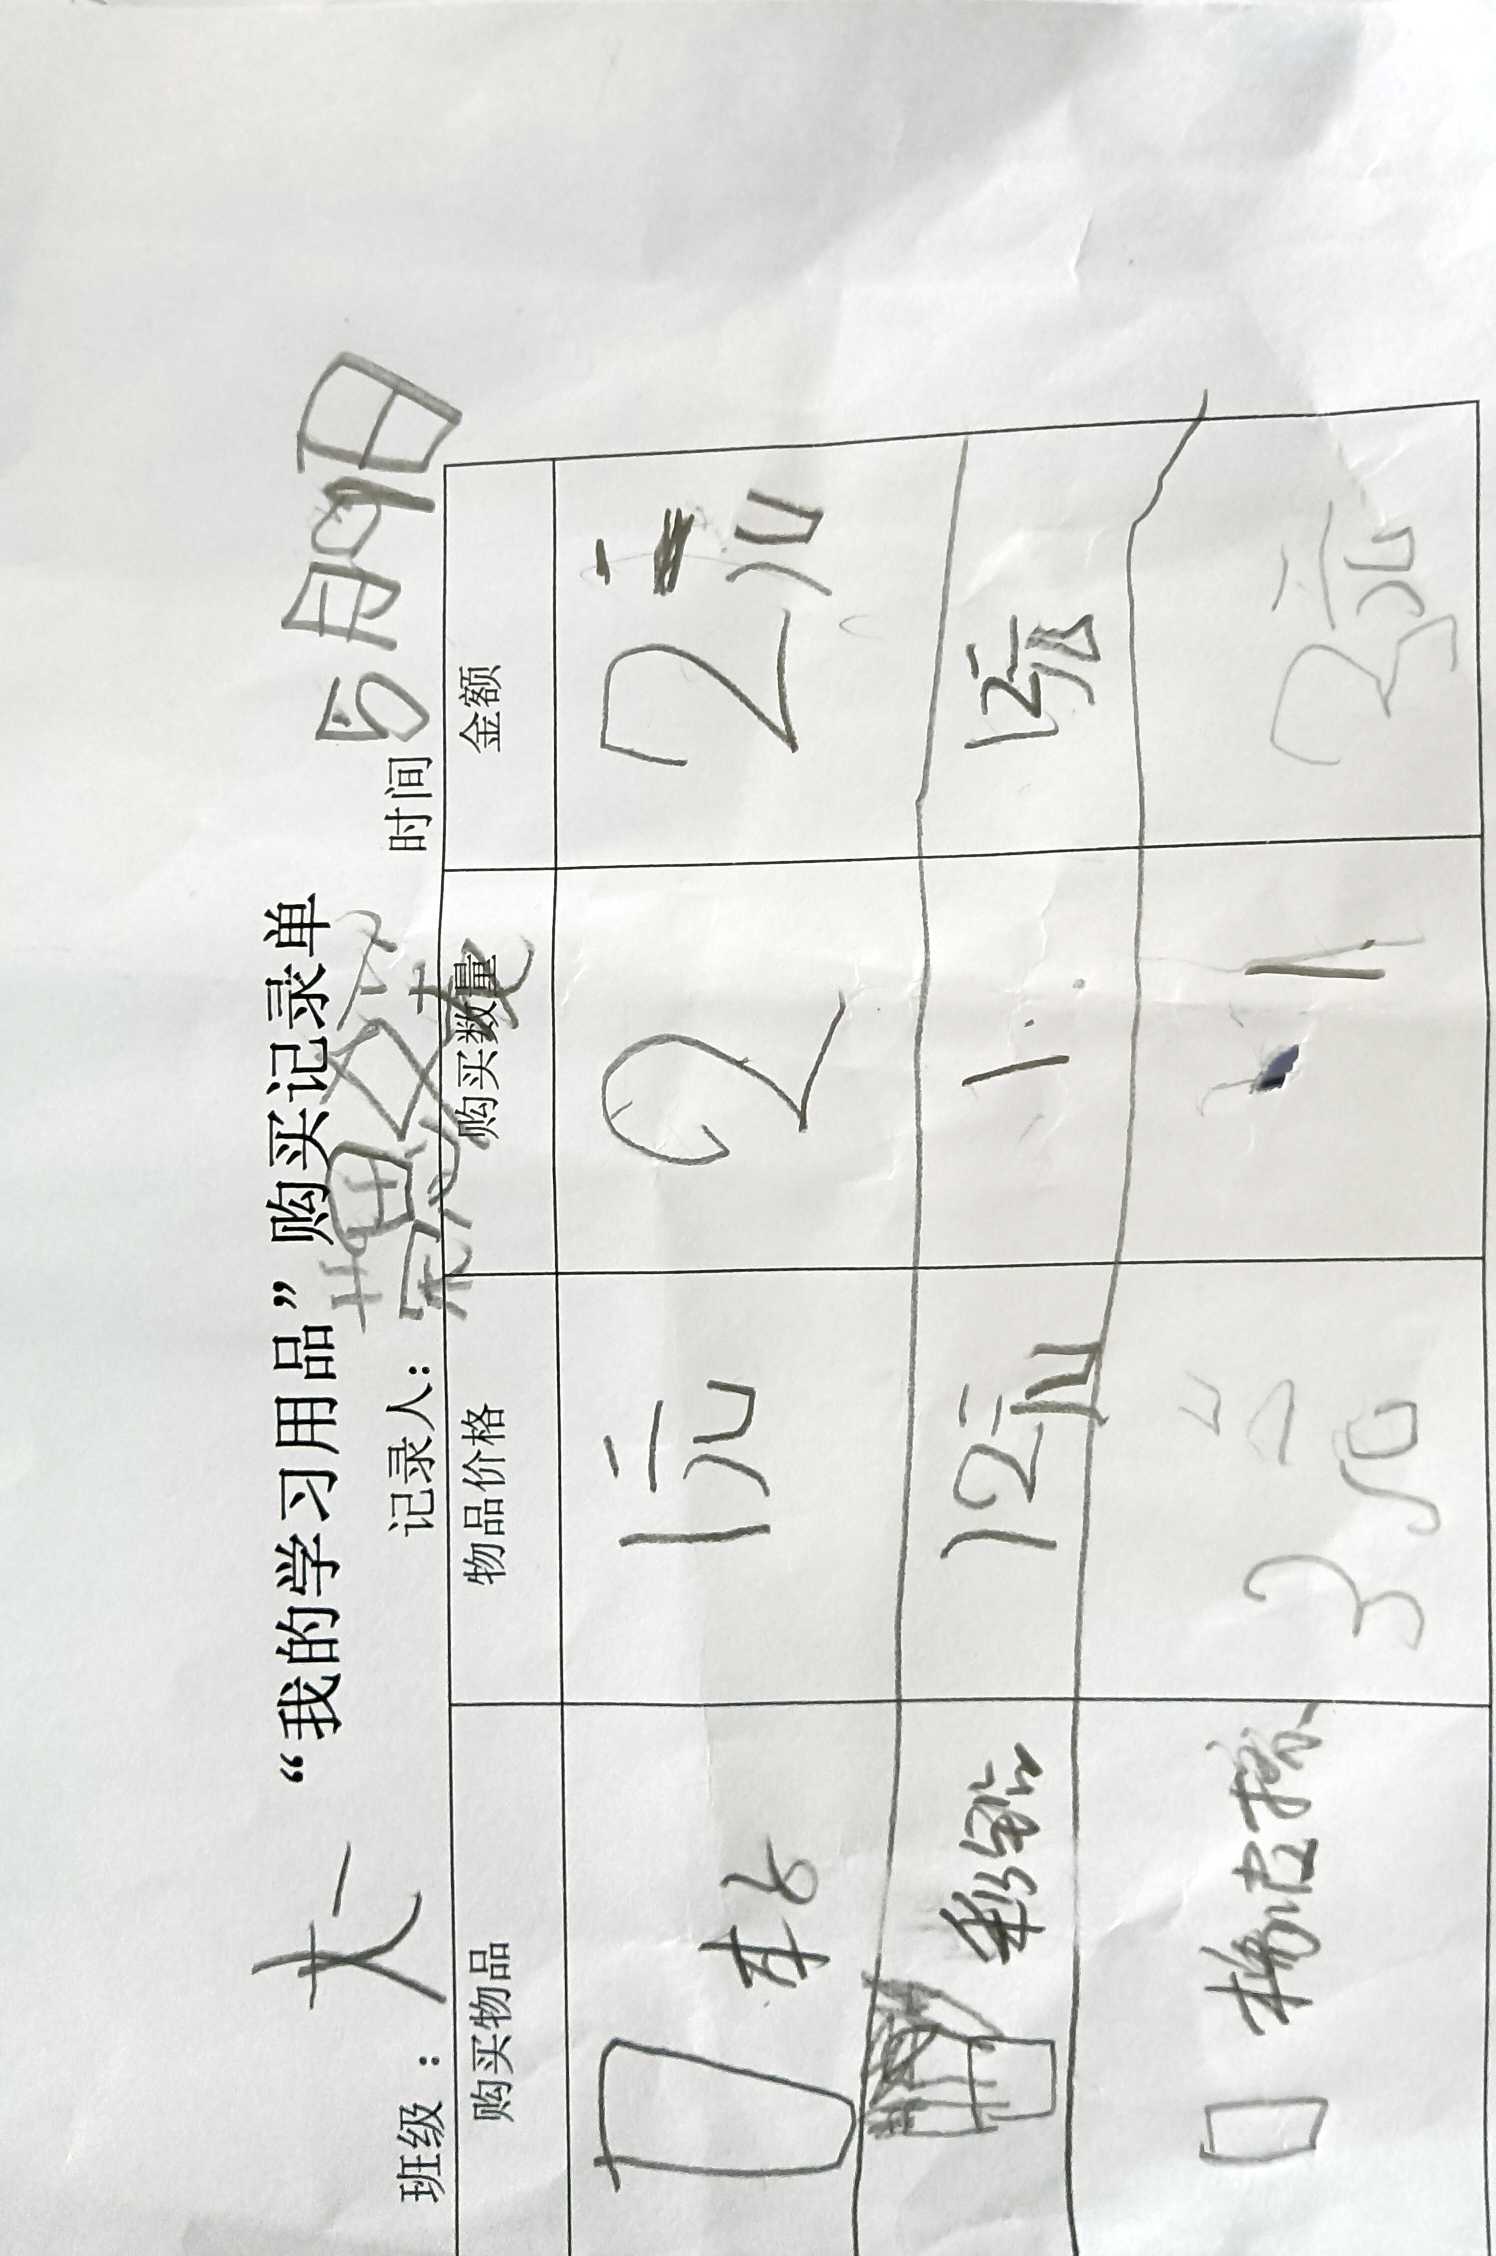 “我的学习用品”购买记录单
班级： 大一 记录人： 时间 5月9日
购买物品 物品价格 购买数量 金额
本子 1元 2 2元
彩铅 12元 1 12元
橡皮擦 3元 1 3元